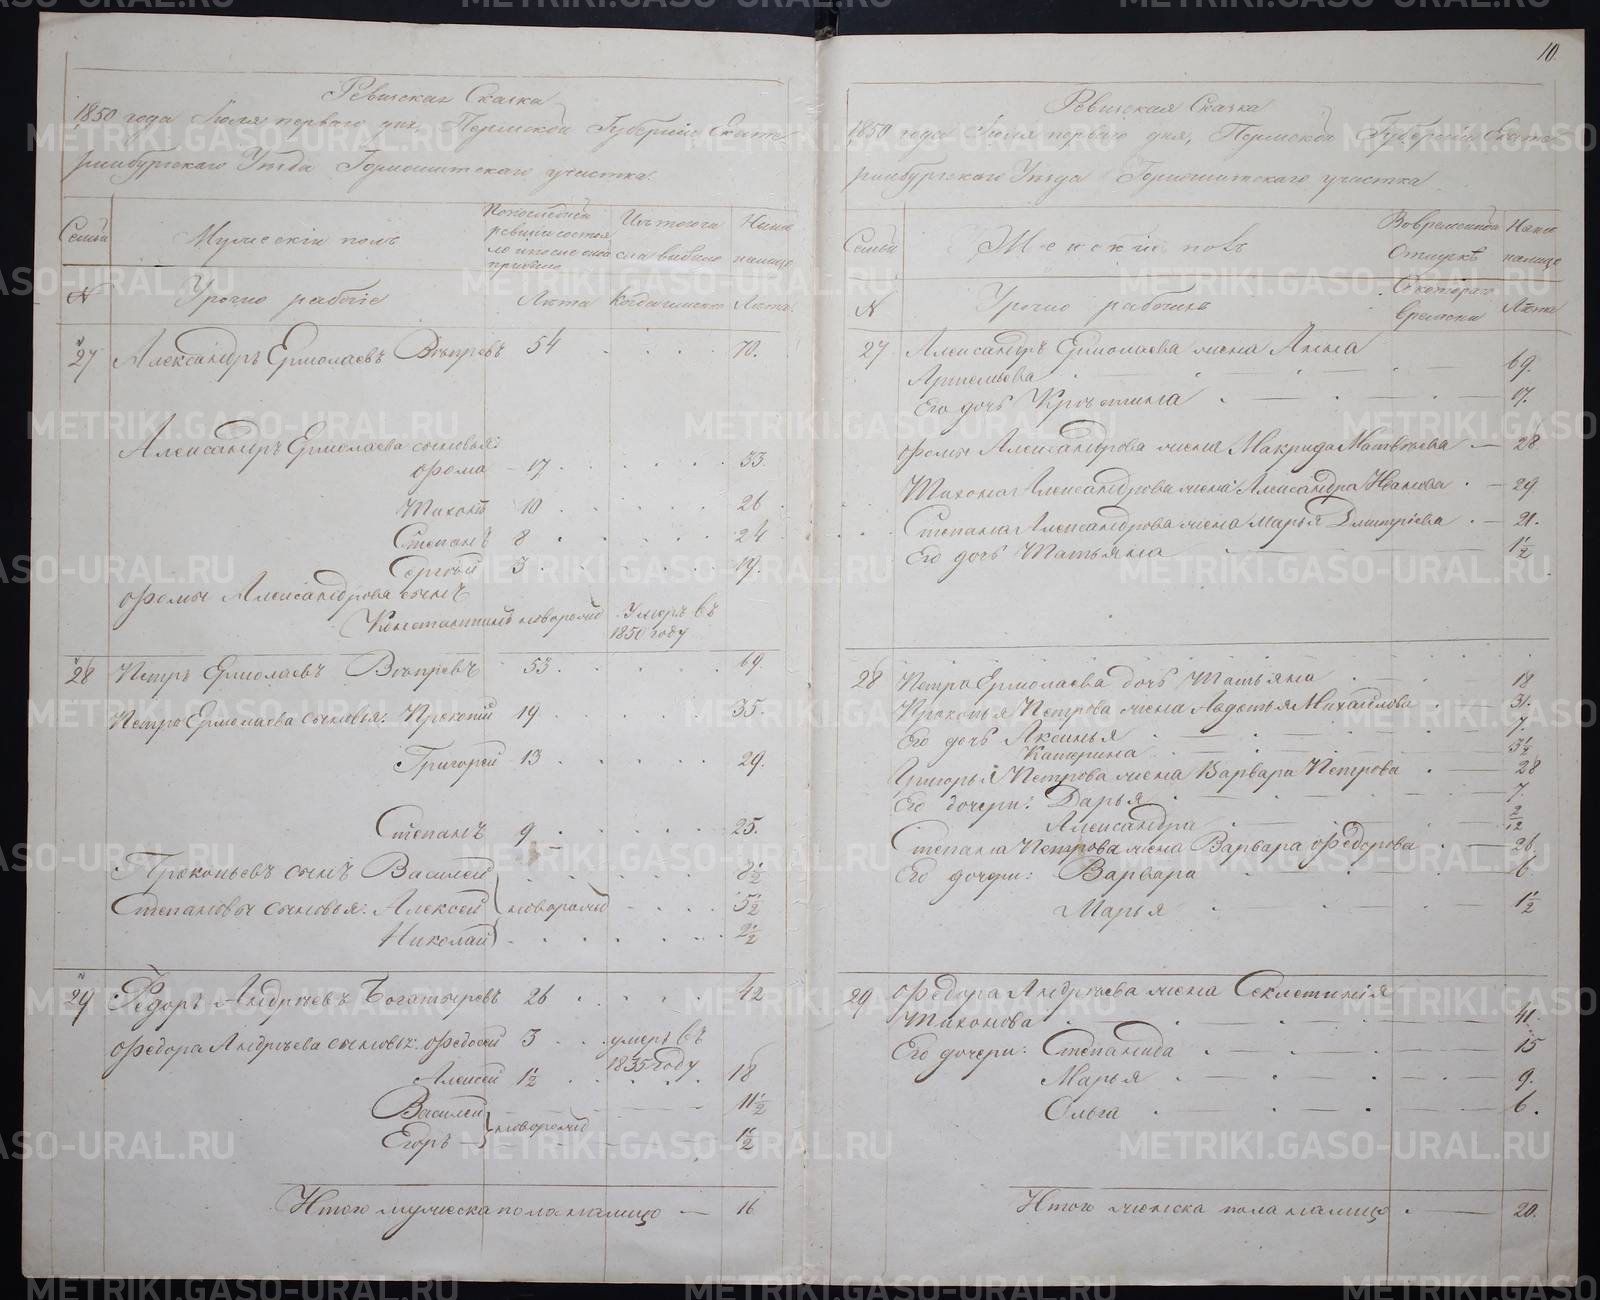 Ревизская Сказка
1850 года Июля перваго дня, Пермской Губернiи Екате
ринбургскаго Уѣзда Горнощитскаго участка.
Семьи
Мужескiй полъ
По последней
ревизiи состоя
ло и после оной
прибыло
Изъ того чи
сла выбыло
Ныне
на лицо
№
Урочно рабочiе
Лѣта
Когда именно
Лѣта.
27 Александръ Ермолаевъ Вѣпревъ 54 70.
Александръ Ермолаева сыновья:
Фома 17 33
Тихонъ 10 26
Степанъ 8 24
Сергѣй 3 19.
Фомы Александрова сынъ
Константинъ новорожд Умеръ въ
1850 году
28 Петръ Ермолаевъ Вѣпревъ 53 69.
Петра Ермолаева сыновья: Прокопiй 19 35.
Григорей 13 29.
Степанъ 9 25.
Прокопьевъ сынъ Василей 8½
Степановы сыновья: Алексей новорожд 5½
Николай 2½
29 Федоръ Андреевъ Богатыревъ 26 42
Федора Андреева сыновья: Федосей 3 умеръ въ
1835 году
Алексей 1½ 18
Василей 11½
новорожд
Егоръ 1½
Итого мужеска пола налицо — 16
10.
Ревизская Сказка
1850 года Июля перваго дня, Пермской Губернiи Екате
ринбургскаго Уѣзда Горнощитскаго участка
Семьи
Женскiй полъ
Во временной
Отлучкѣ
Ныне
налицо
№
Урочно рабочихъ
Съ котораго
времени
Лѣта
27 Александръ Ермолаева жена Анна
Артемьева 69.
Его дочь Крестина 17.
Фомы Александрова жена Макрида Матвѣева — 28
Тихона Александрова жена Александра Иванова — 29.
Степана Александрова жена Марья Дмитрiева — 21.
Его дочь Татьяна 1½
28 Петра Ермолаева дочь Татьяна 18
Прокопья Петрова жена Авдотья Михайлова 31.
Его дочь Аксинья 7.
Катерина 3½
Григорья Петрова жена Варвара Петрова 28
Его дочери: Дарья 7.
Александра 2/12
Степана Петрова жена Варвара Федорова 26.
Его дочери: Варвара 6
Марья 1½
29 Федора Андреева жена Секлетинiя
Тихонова 41.
Его дочери: Степанида 15
Марья 9.
Ольга 6.
Итого женска пола налицо 20.
METRIKI.GASO-URAL.RU